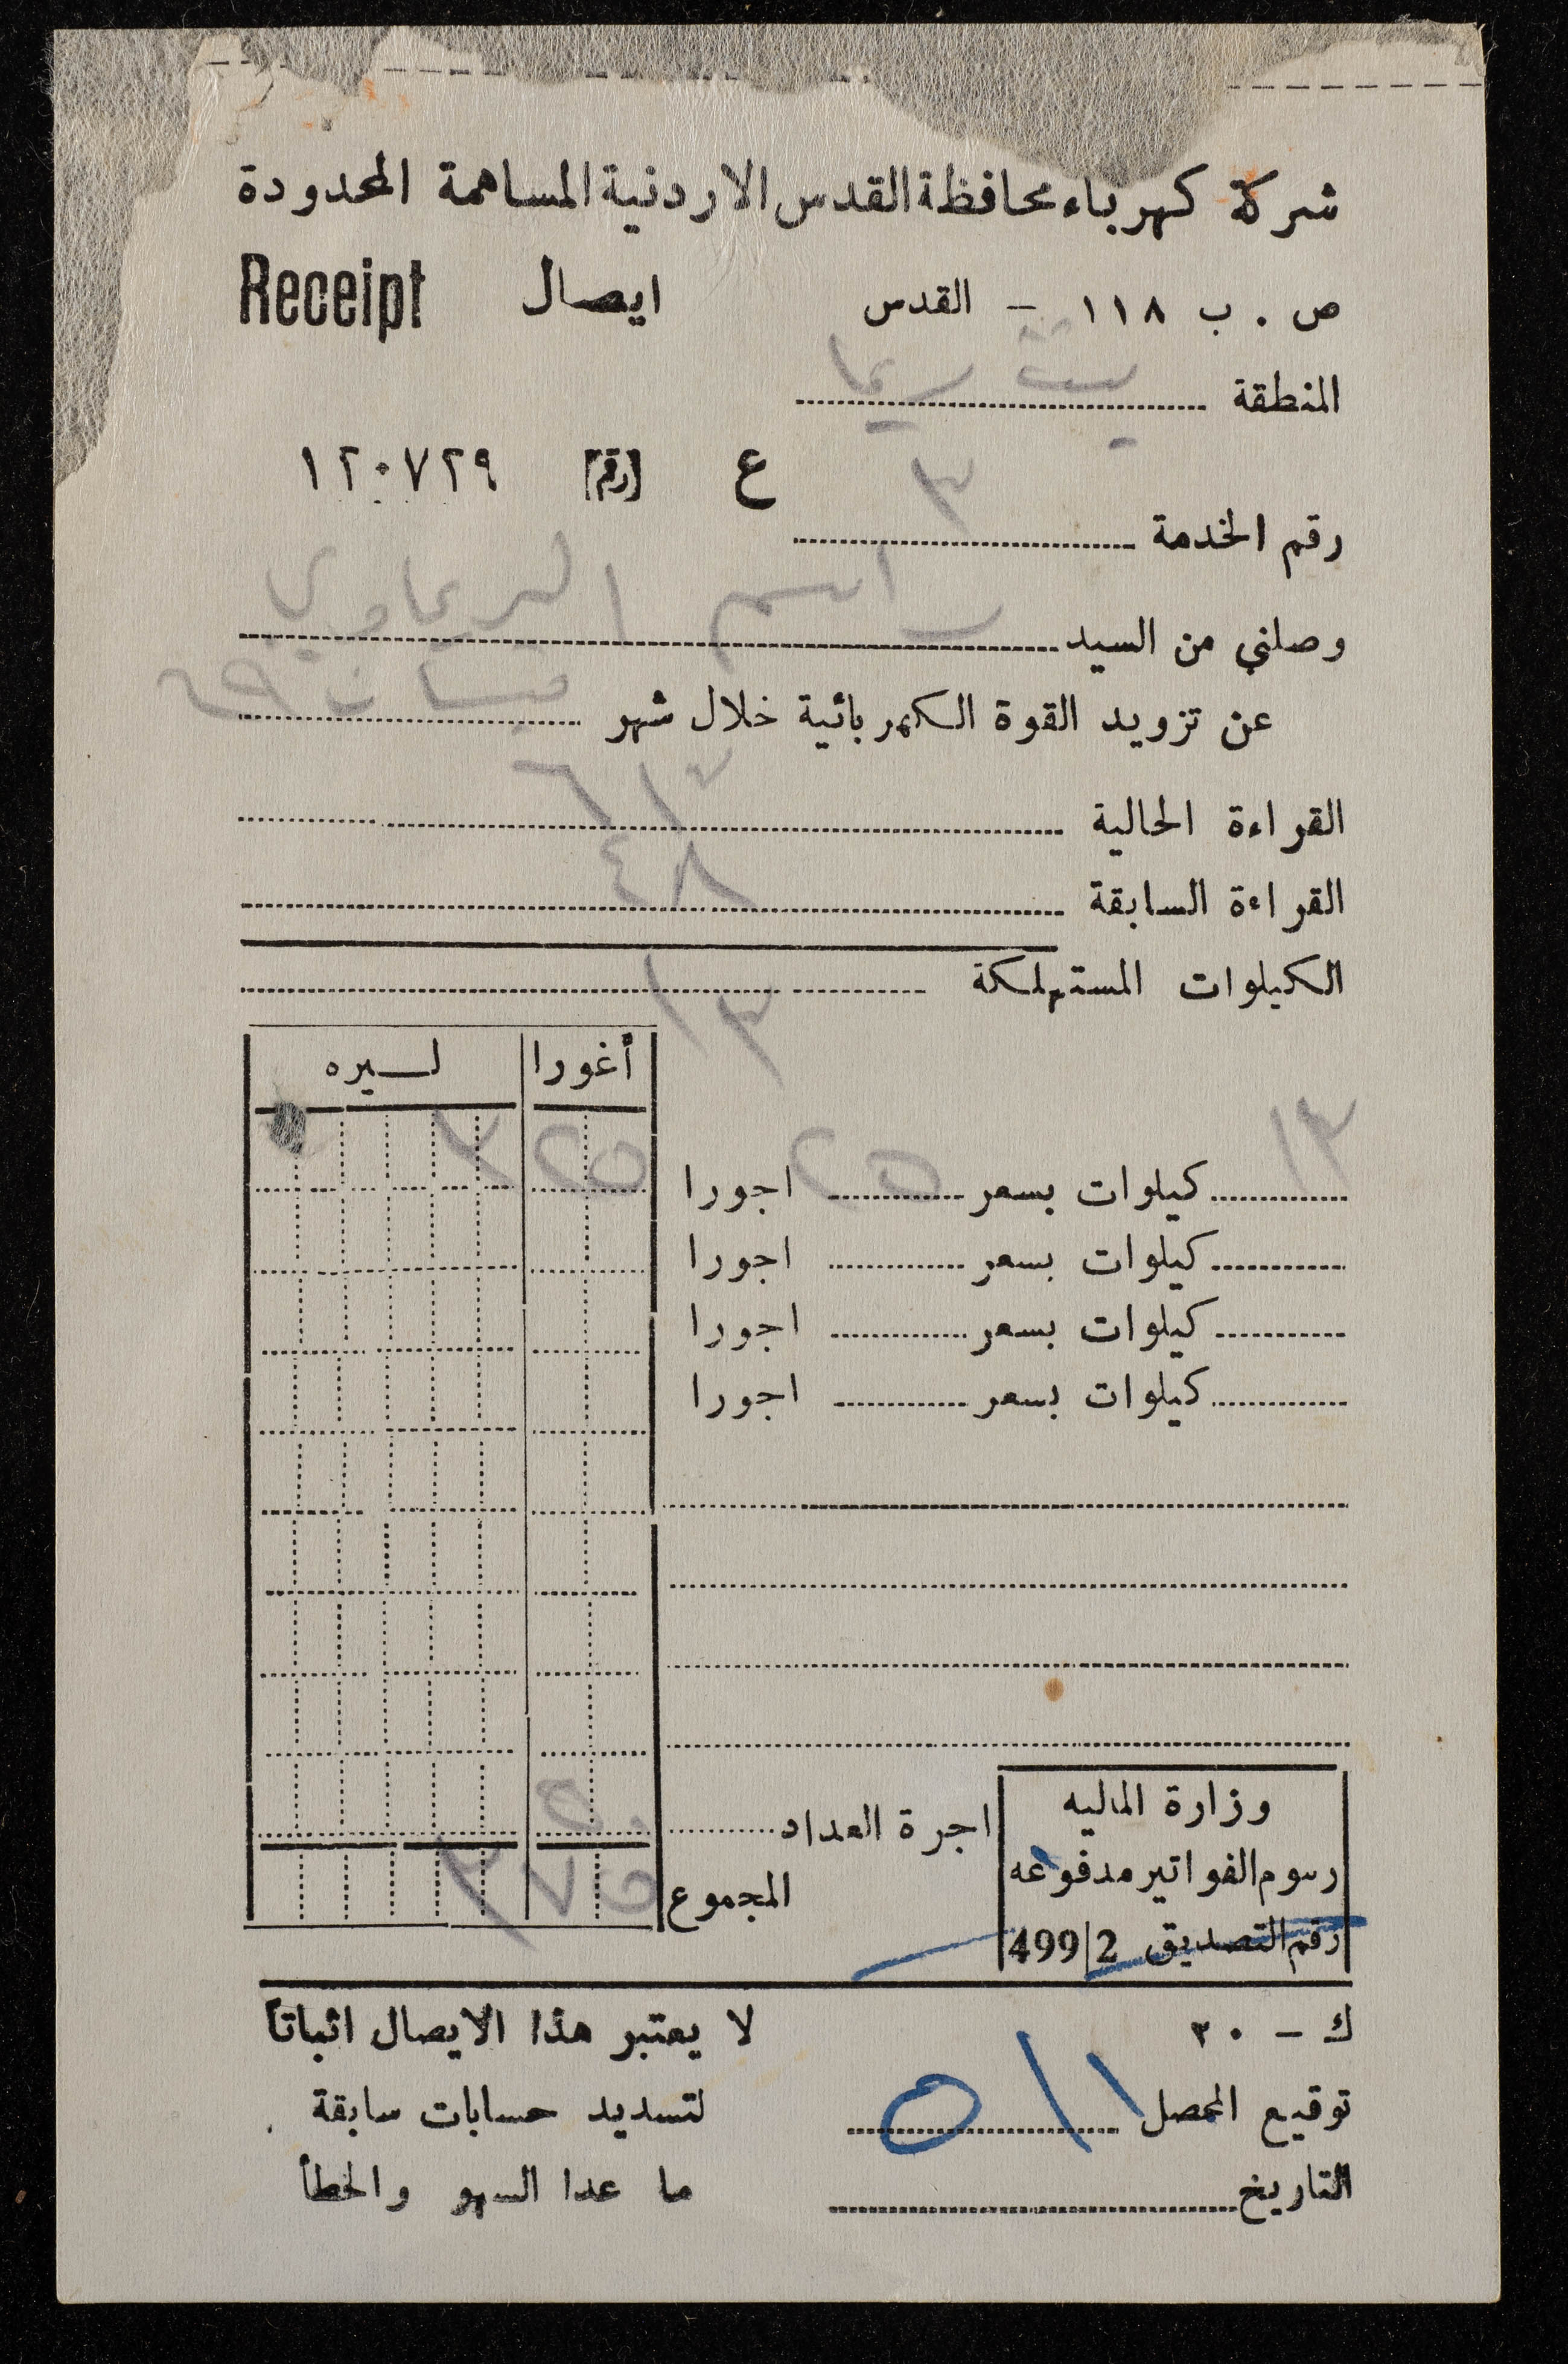 شركة كهرباء محافظة القدس الاردنية المساهمة المحدودة
ص . ب ١١٨ – القدس ايصال Receipt
المنطقة بيت ريما
ع [رقم] ١٢٠٧٢٩
رقم الخدمة ٣
وصلني من السيد راسم الريماوي
عن تزويد القوة الكهربائية خلال شهر نيسان
القراءة الحالية
القراءة السابقة ٨٤
الكيلوات المستهلكة ١٣
أغورا ليره
١٣ كيلوات بسعر ٢٥ اجورا ٢٥ ٣
كيلوات بسعر اجورا
كيلوات بسعر اجورا
كيلوات بسعر اجورا
وزارة الماليه
رسوم الفواتير مدفوعه
رقم التصديق 2|499
اجرة العداد ٥٠
المجموع ٧٥ ٣
ك – ٢٠
توقيع المحصل
التاريخ
لا يعتبر هذا الايصال اثباتاً
لتسديد حسابات سابقة .
ما عدا السهو والخطأ